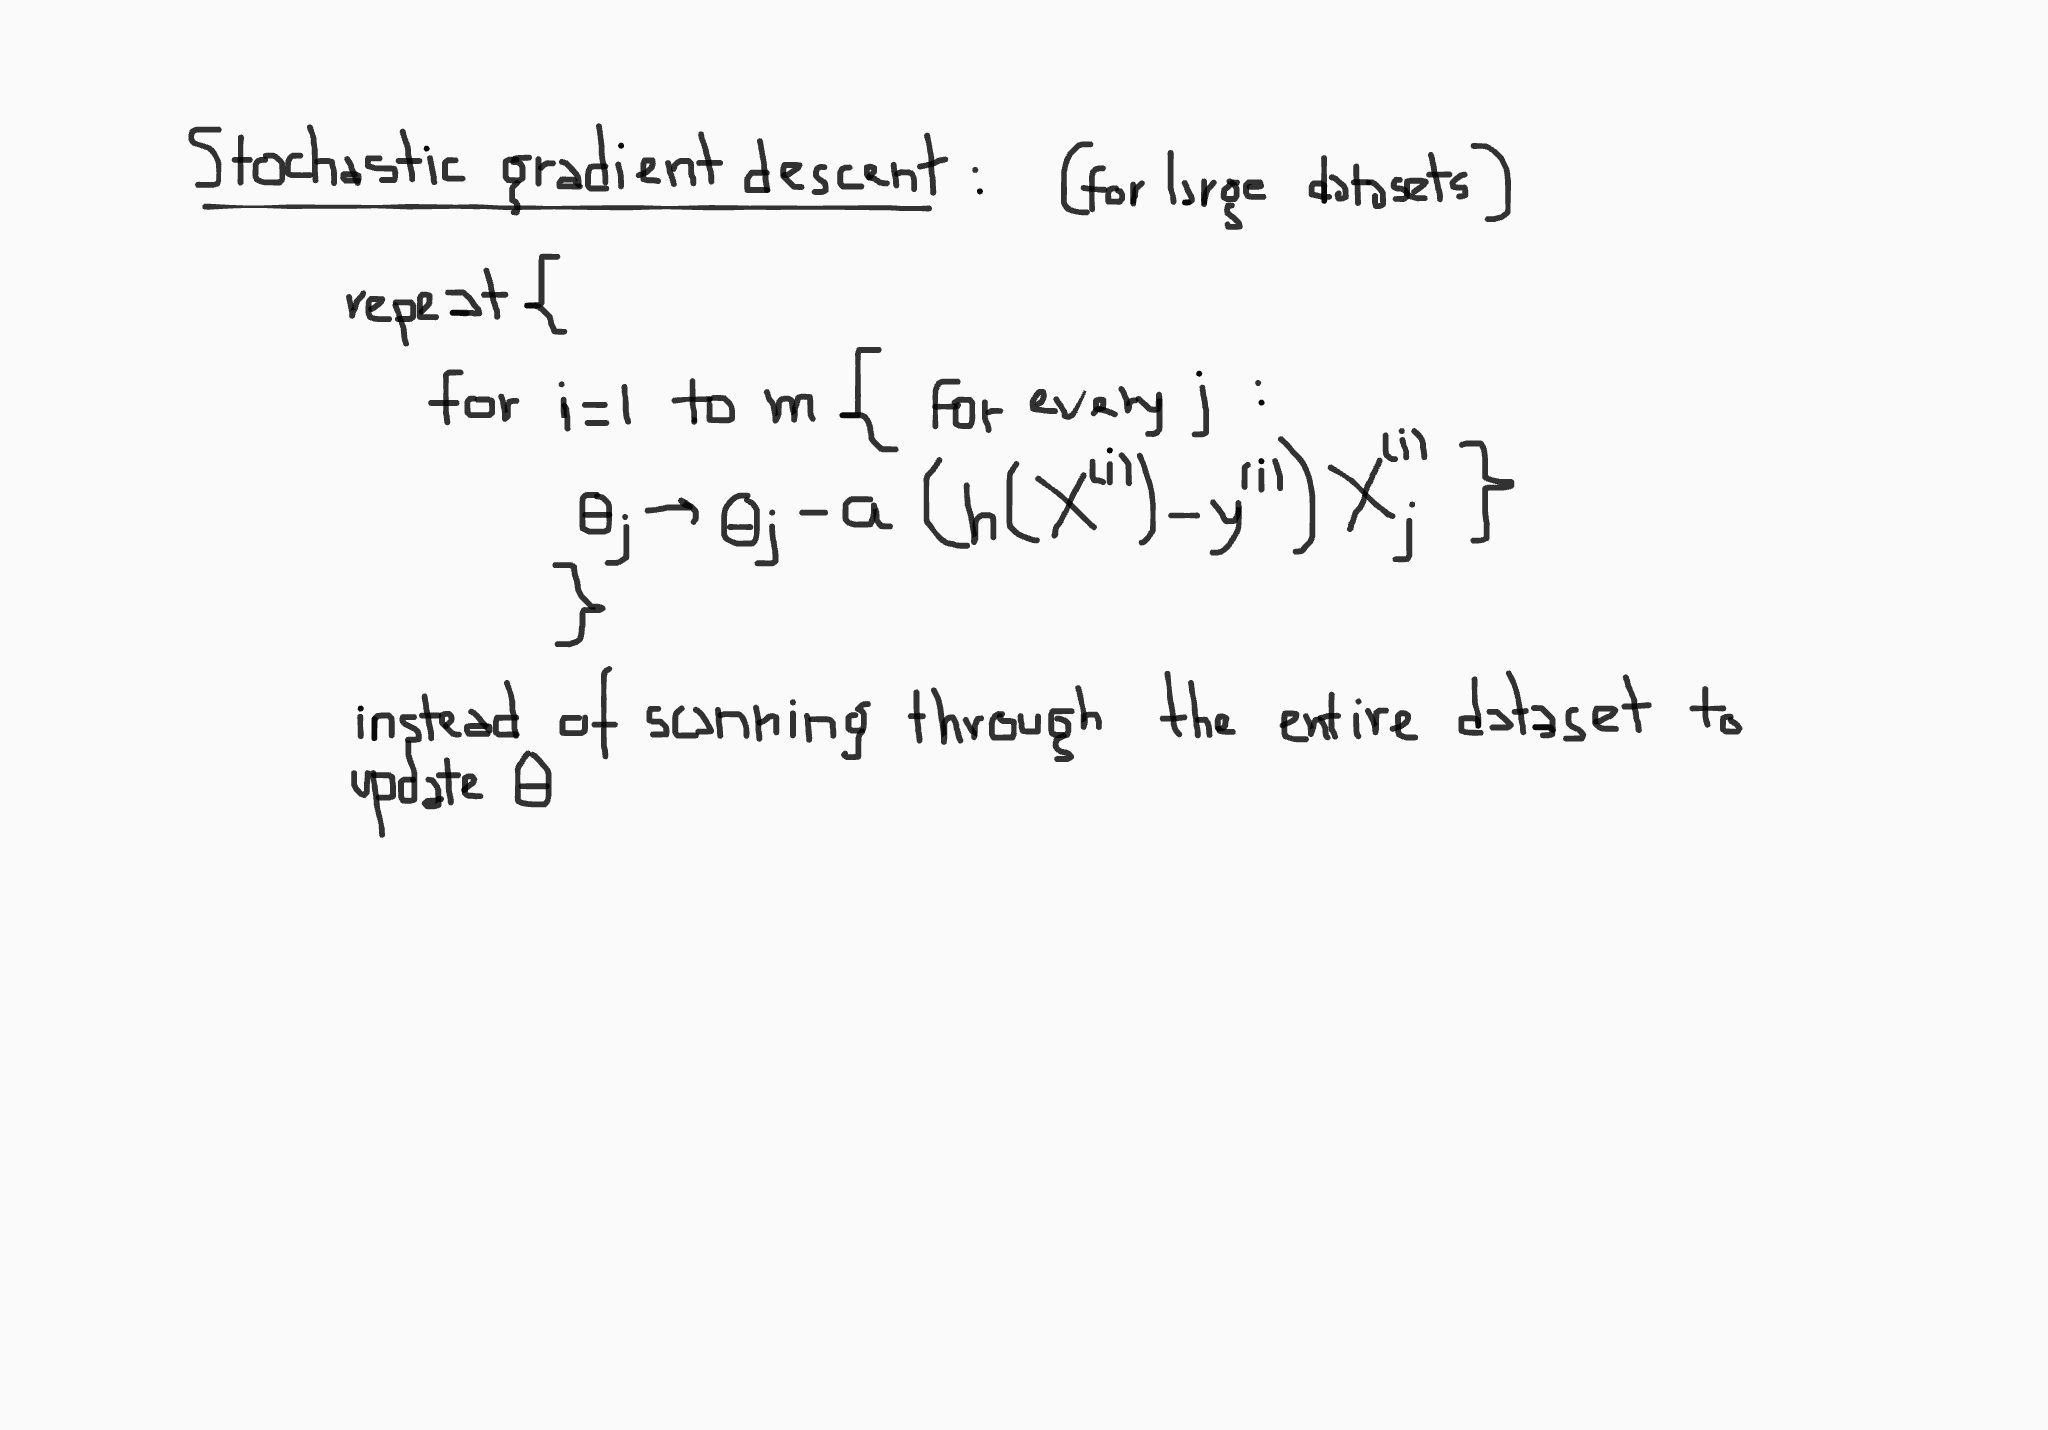 Stochastic gradient descent : (for large datasets)
repeat {
for i=1 to m { For every j :
θ_j → θ_j - a (h(X^(i)) - y^(i)) X_j^(i) }
}
instead of scanning through the entire dataset to
update θ